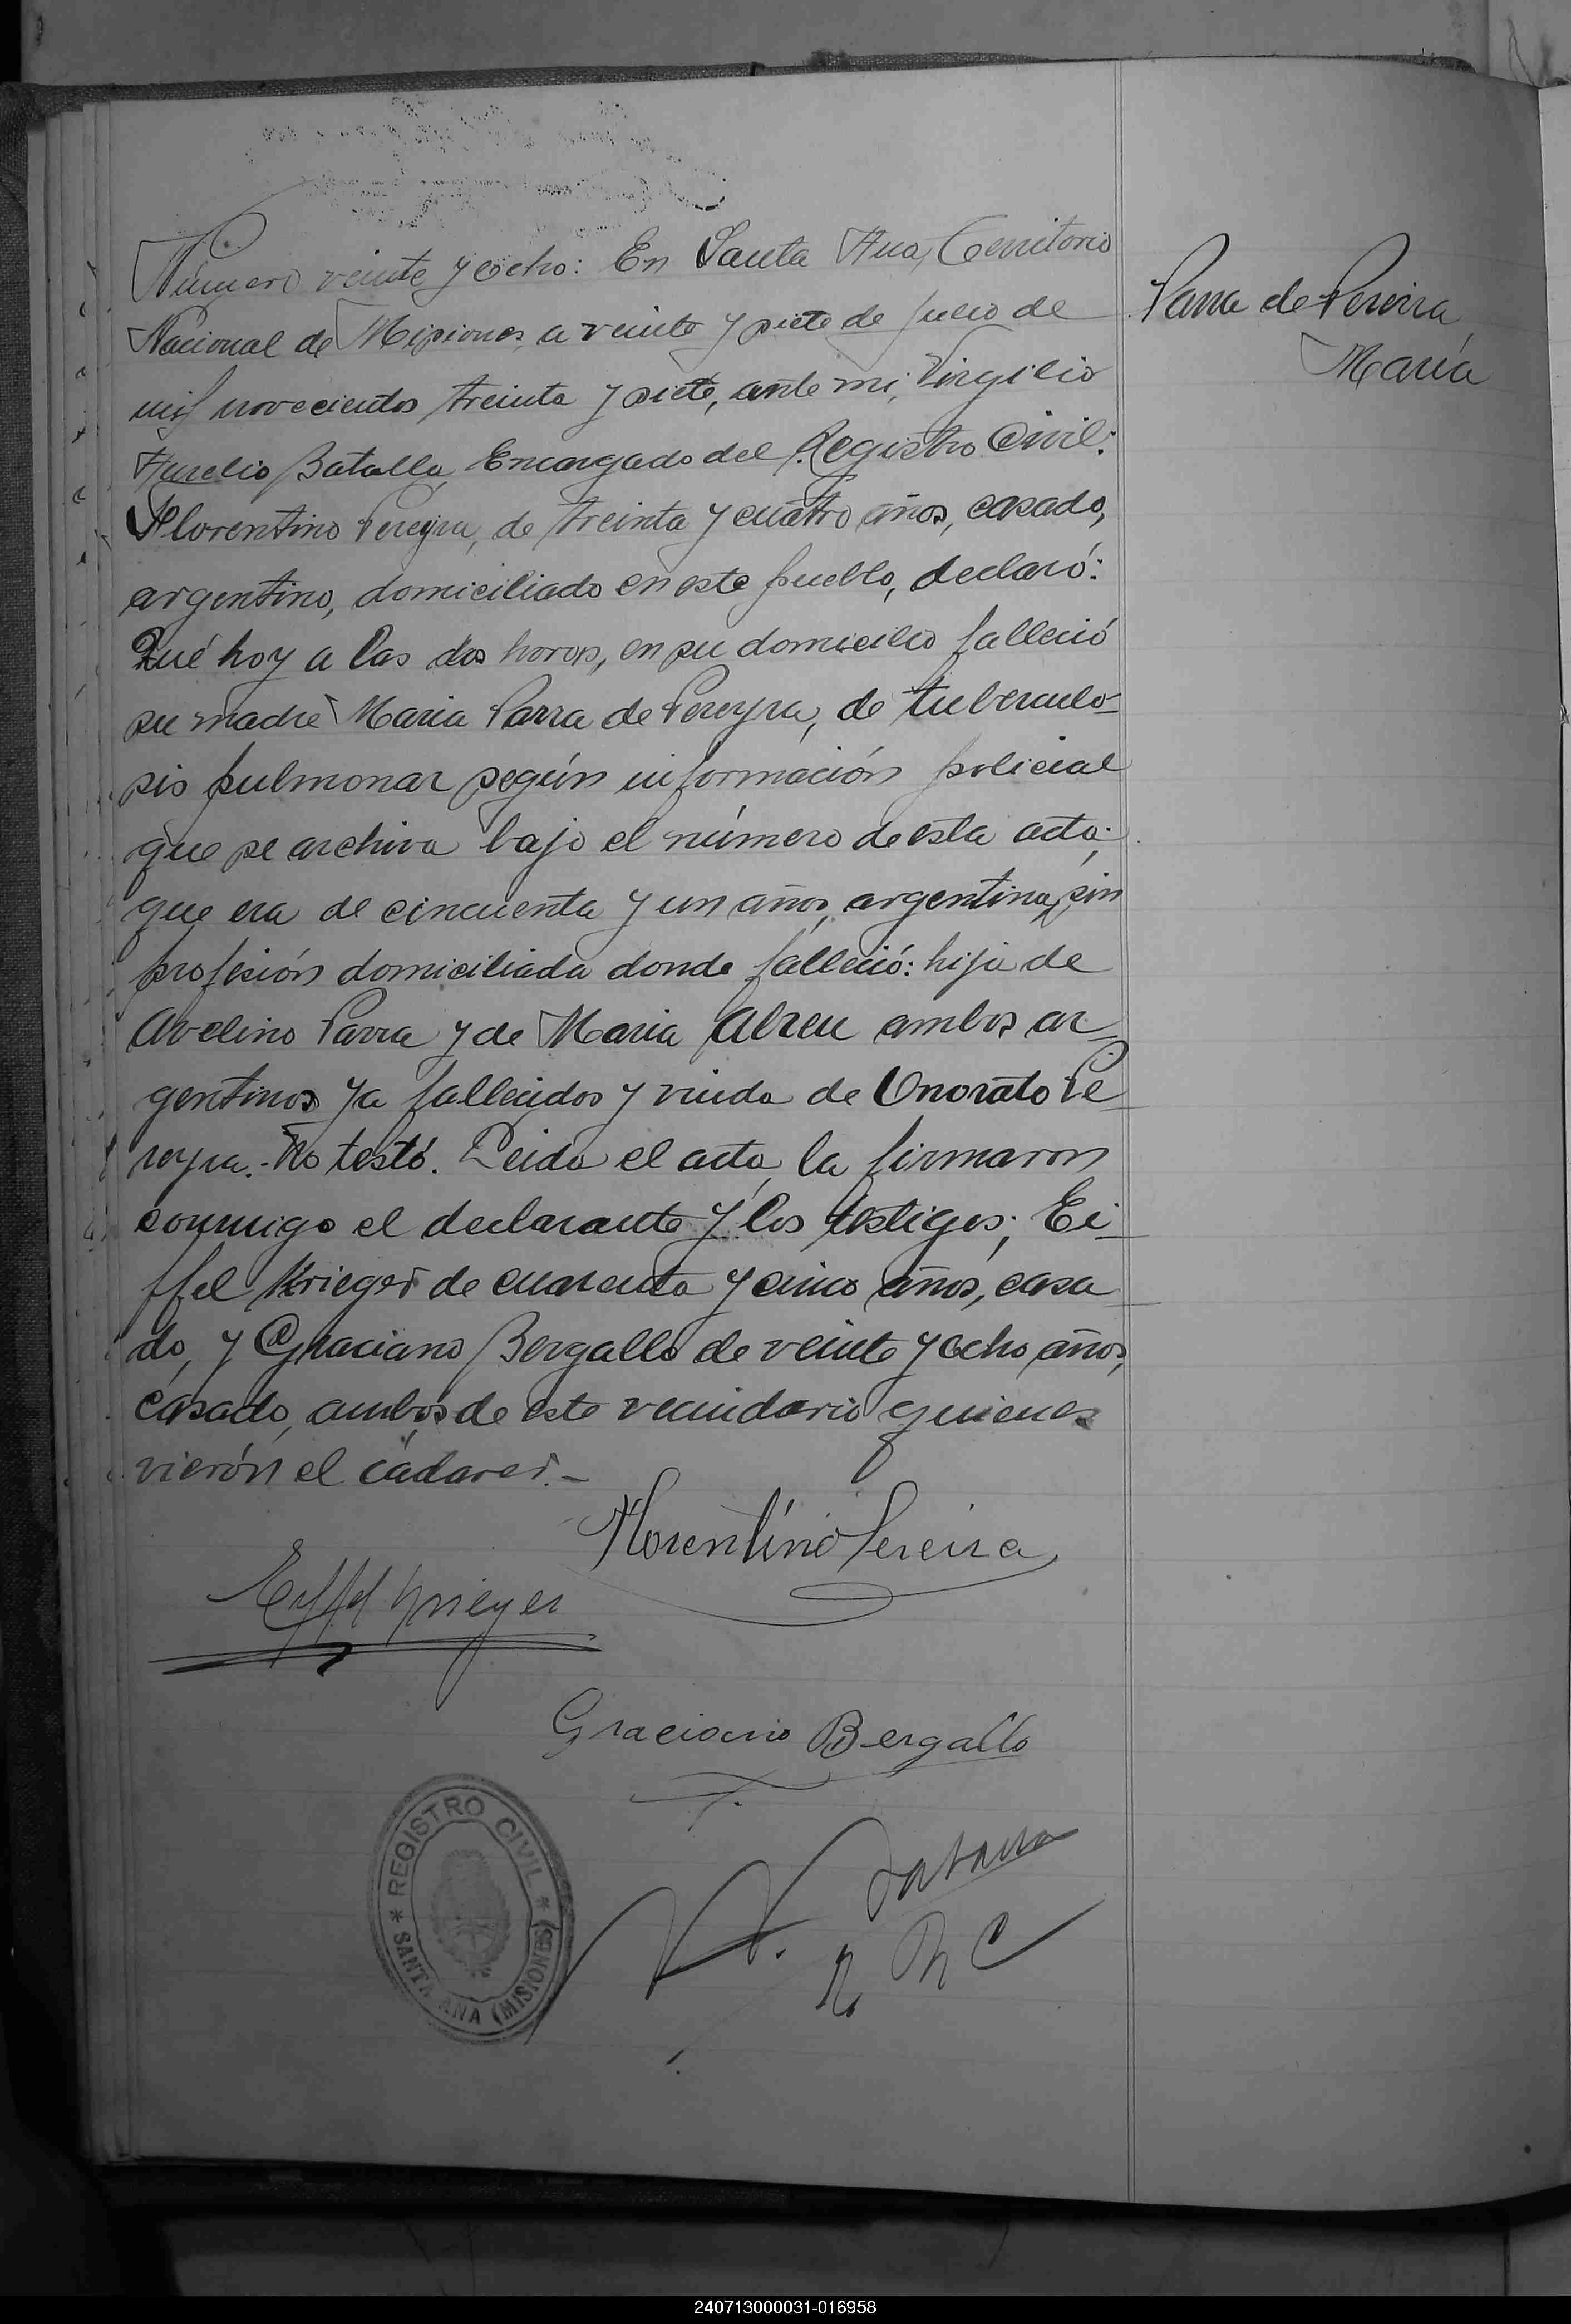 Número veinte y ocho: En Santa Ana, Territorio
Nacional de Misiones, a veinte y siete de Julio de
mil novecientos treinta y siete, ante mi, Virgilio
Aurelio Batalla, Encargado del Registro Civil:
Florentino Pereyra, de treinta y cuatro años, casado,
argentino, domiciliado en este pueblo, declaró:
Qué hoy a las dos horas, en su domicilio falleció
su madre Maria Parra de Pereyra, de tuberculo-
sis pulmonar según información policial
que se archiva bajo el número de esta acta;
que era de cincuenta y un años, argentina, sin
profesión domiciliada donde falleció: hija de
Avelino Parra y de Maria Abreu ambos ar-
gentinos ya fallecidos y viuda de Onorato Pe-
reyra.- No testó. Leida el acta, la firmaron
conmigo el declarante y los testigos; Ei-
ffel Krieger de cuarenta y cinco años, casa-
do, y Graciano Bergallo de veinte y ocho años,
casado, ambos de este vecindario quienes
vierón el cádaver.-
Parra de Pereira
María
Florentino Pereira
Eiffel Krieger
Graciano Bergallo
V. A. Batalla
REGISTRO CIVIL
SANTA ANA (MISIONES)
240713000031-016958